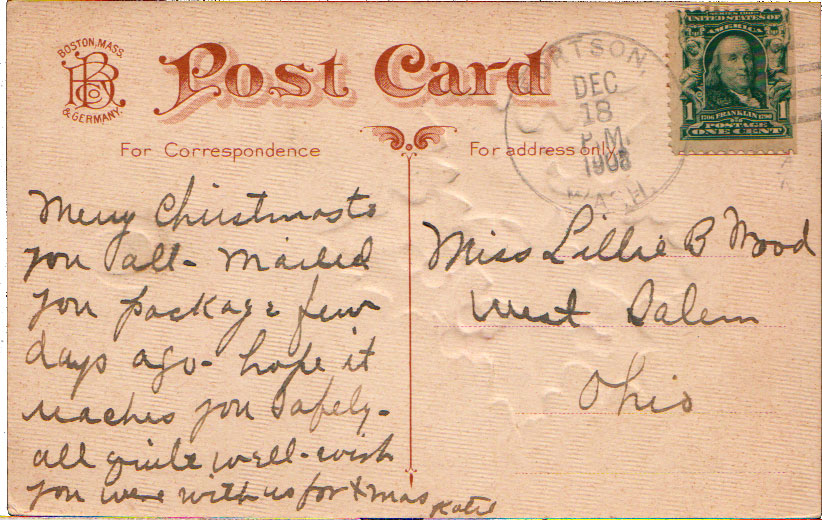 BOSTON, MASS.
BRCo
& GERMANY.
Post Card
For Correspondence
For address only.
RTSON,
DEC
18
P.M.
1908
WASH.
UNITED STATES OF
AMERICA
1 1706 FRANKLIN 1790 1
POSTAGE
ONE CENT
Merry Christmas to
you all - mailed
you package few
days ago - hope it
reaches you safely -
all quite well - wish
you were with us for Xmas
Katie
Miss Lillie B Wood
West Salem
Ohio